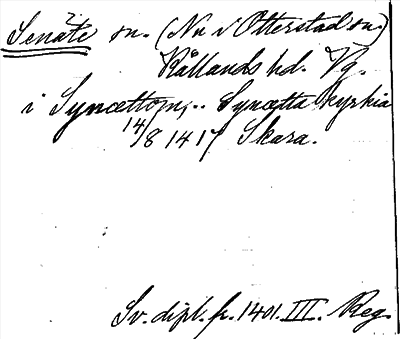 Senäte sn. (Nu i Otterstad sn.)
Kållands hd. Vg.
i Synættom, .. Synætta kyrkia
14/8 1417 Skara.
Sv. dipl. fr. 1401. III. Reg.